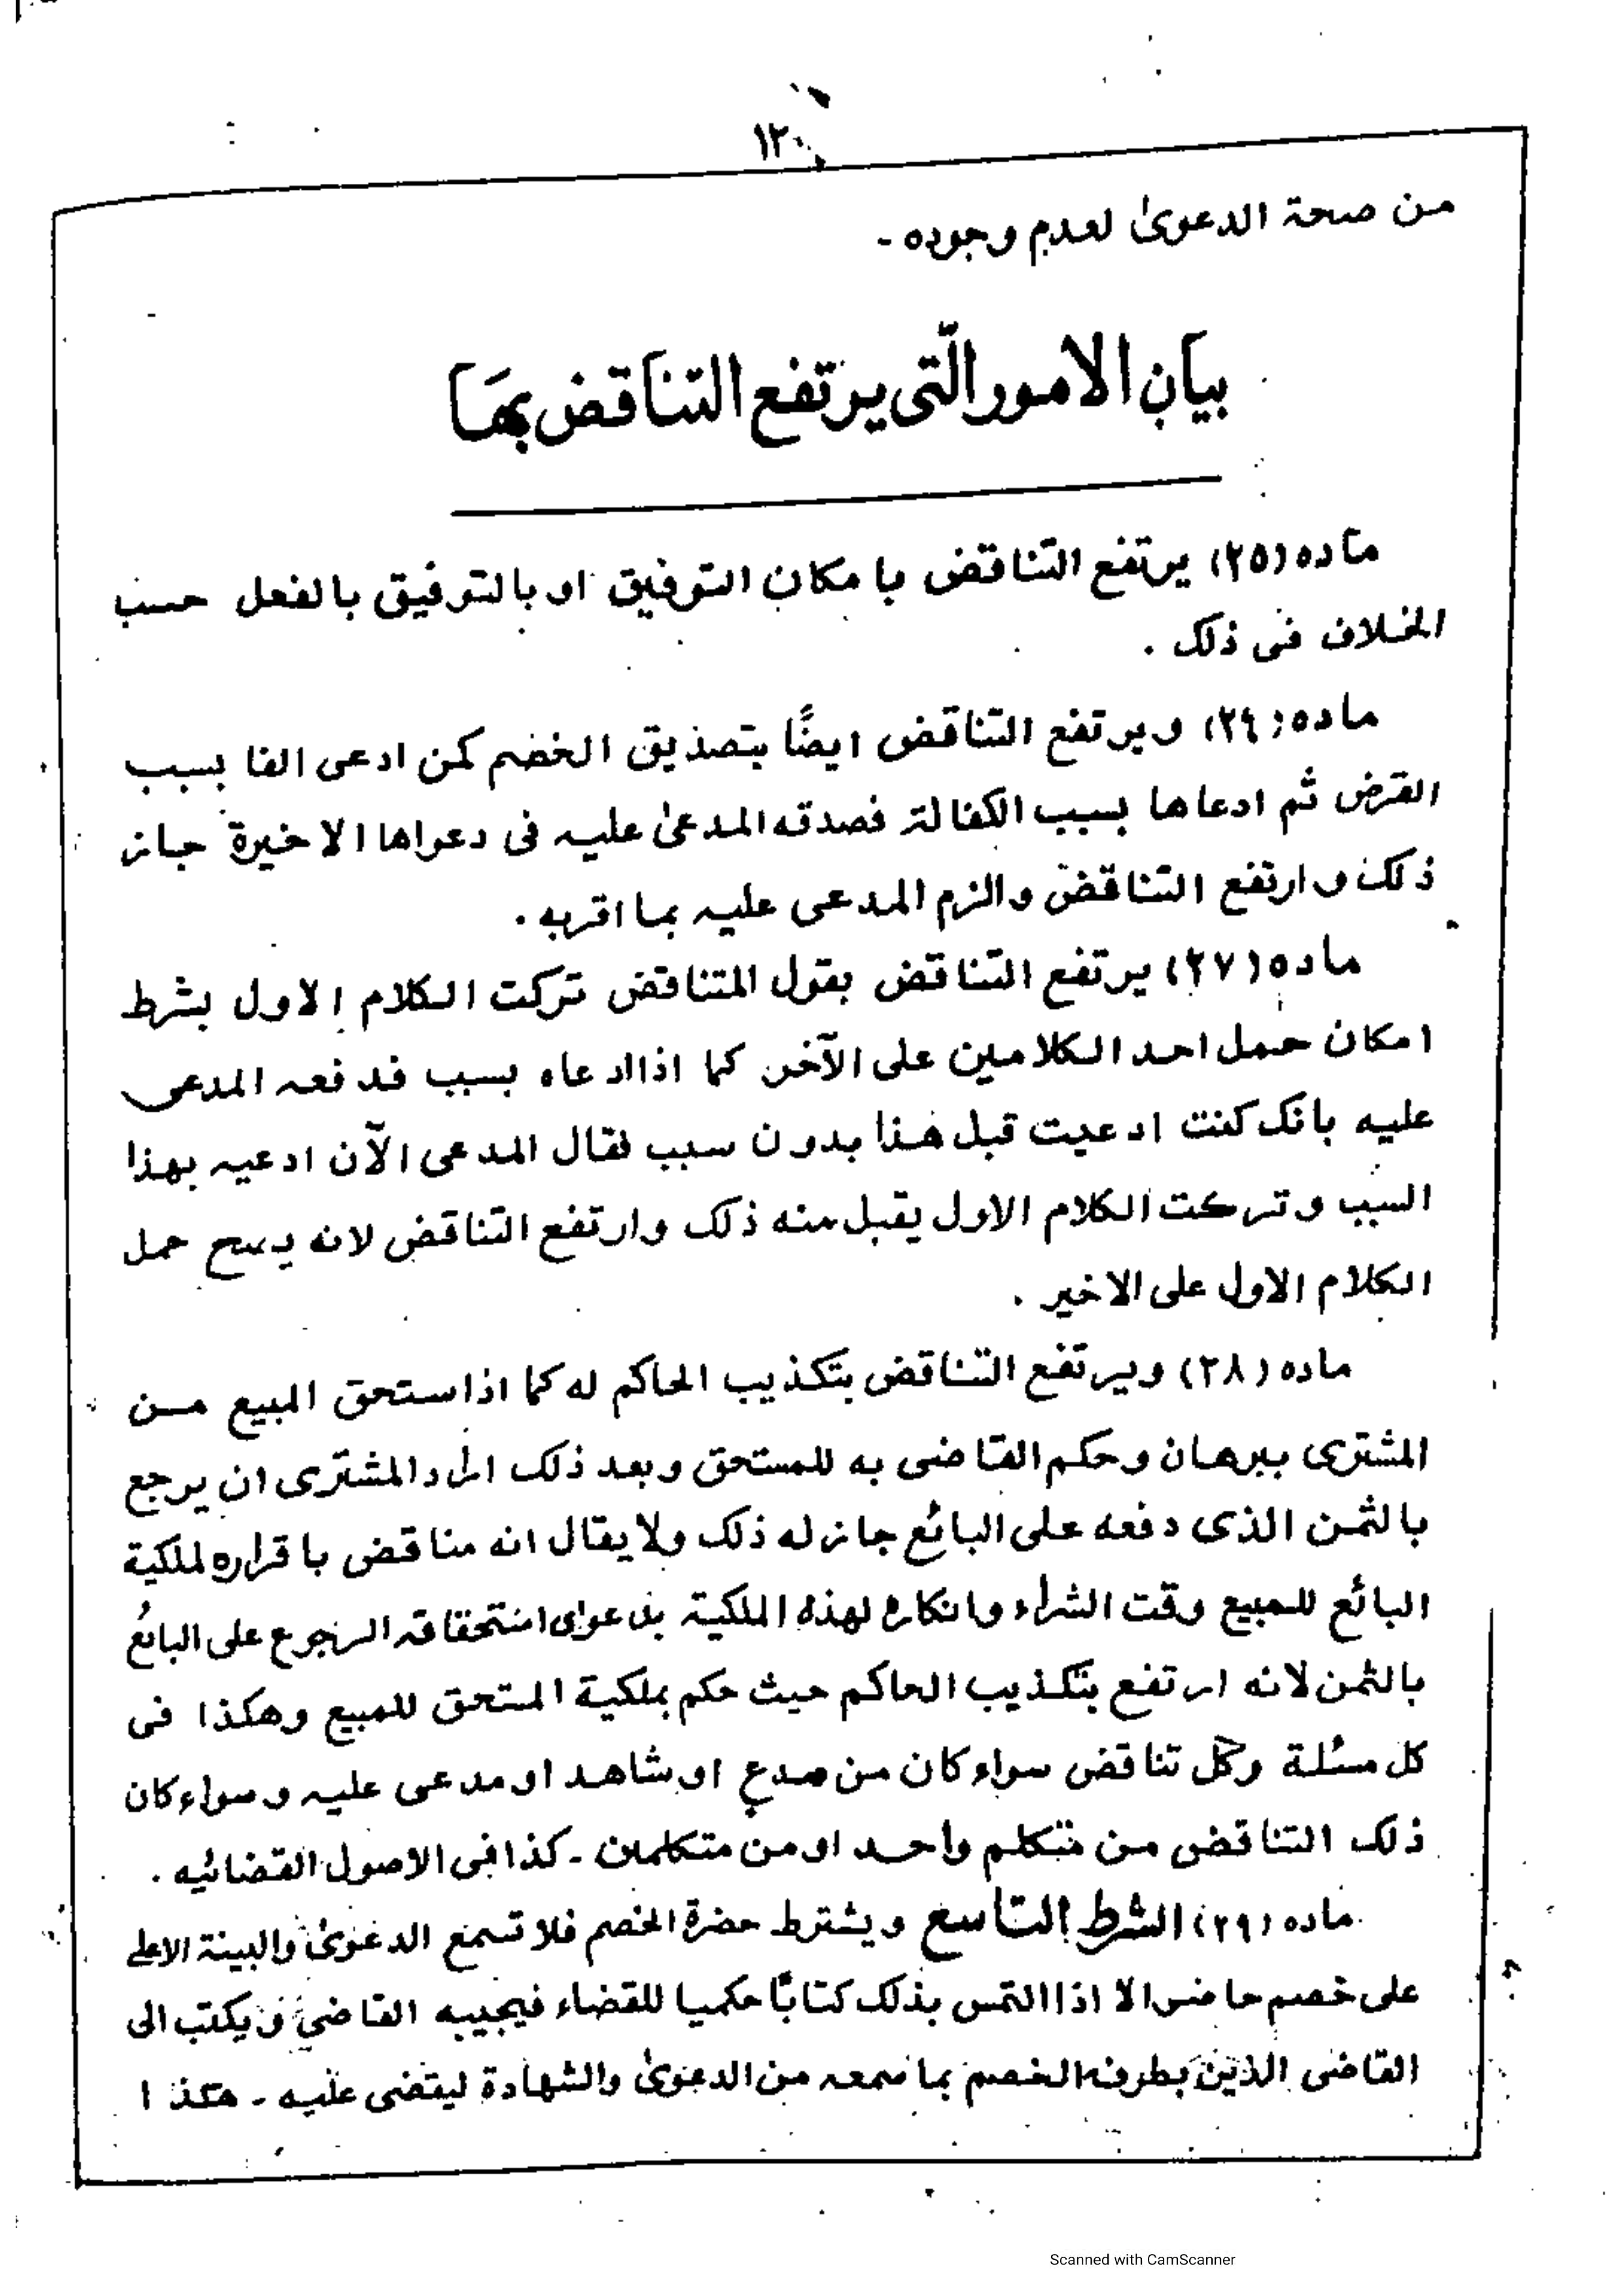 ١٢٠
من صحة الدعویٰ لعدم وجوده -
بيان الامور الّتی يرتفع التناقض بها
ماده (٢٥) يرتفع التناقض با مكان التوفيق او بالتوفيق بالفعل حسب
الخلاف فی ذلك .
ماده (٢٦) ويرتفع التناقض ايضًا بتصديق الخصم كمن ادعی الفا بسبب
القرض ثم ادعاها بسبب الكفالة فصدقه المدعیٰ عليه فی دعواها الاخيرة جاز
ذلك وارتفع التناقض والزم المدعی عليه بما اقربه .
ماده (٢٧) يرتفع التناقض بقول المتناقض تركت الكلام الاول بشرط
امكان حمل احد الكلامين علی الآخر كما اذا ادعاه بسبب فدفعه المدعی
عليه بانك كنت ادعيت قبل هذا بدون سبب فقال المدعی الآن ادعيه بهذا
السبب وتركت الكلام الاول يقبل منه ذلك وارتفع التناقض لانه يصح حمل
الكلام الاول علی الاخير .
ماده (٢٨) ويرتفع التناقض بتكذيب الحاكم له كما اذا ستحق المبيع من
المشتری ببرهان وحكم القاضی به للمستحق وبعد ذلك اراد المشتری ان يرجع
بالثمن الذی دفعه علی البائع جاز له ذلك ولا يقال انه مناقض باقراره لملكية
البائع للمبيع وقت الشراء وانكاره لهذه الملكية بدعوای استحقاقه الرجوع علی البائع
بالثمن لانه ارتفع بتكذيب الحاكم حيث حكم بملكية المستحق للمبيع وهكذا فی
كل مسئلة وكل تناقض سواء كان من مدع او شاهد او مدعی عليه وسواء كان
ذلك التناقض من متكلم واحد او من متكلمان - كذا فی الاصول القضائيه .
ماده (٢٩) الشرط التاسع ويشترط حضرة الخصم فلا تسمع الدعویٰ والبينة الاعلی
علی خصم حاضر الا اذا التمس بذلك كتابًا حكميا للقضاء فيجيبه القاضی ويكتب الی
القاضی الذين بطرفه الخصم بما سمعه من الدعویٰ والشهادة ليقضی عليه - هكذا
Scanned with CamScanner